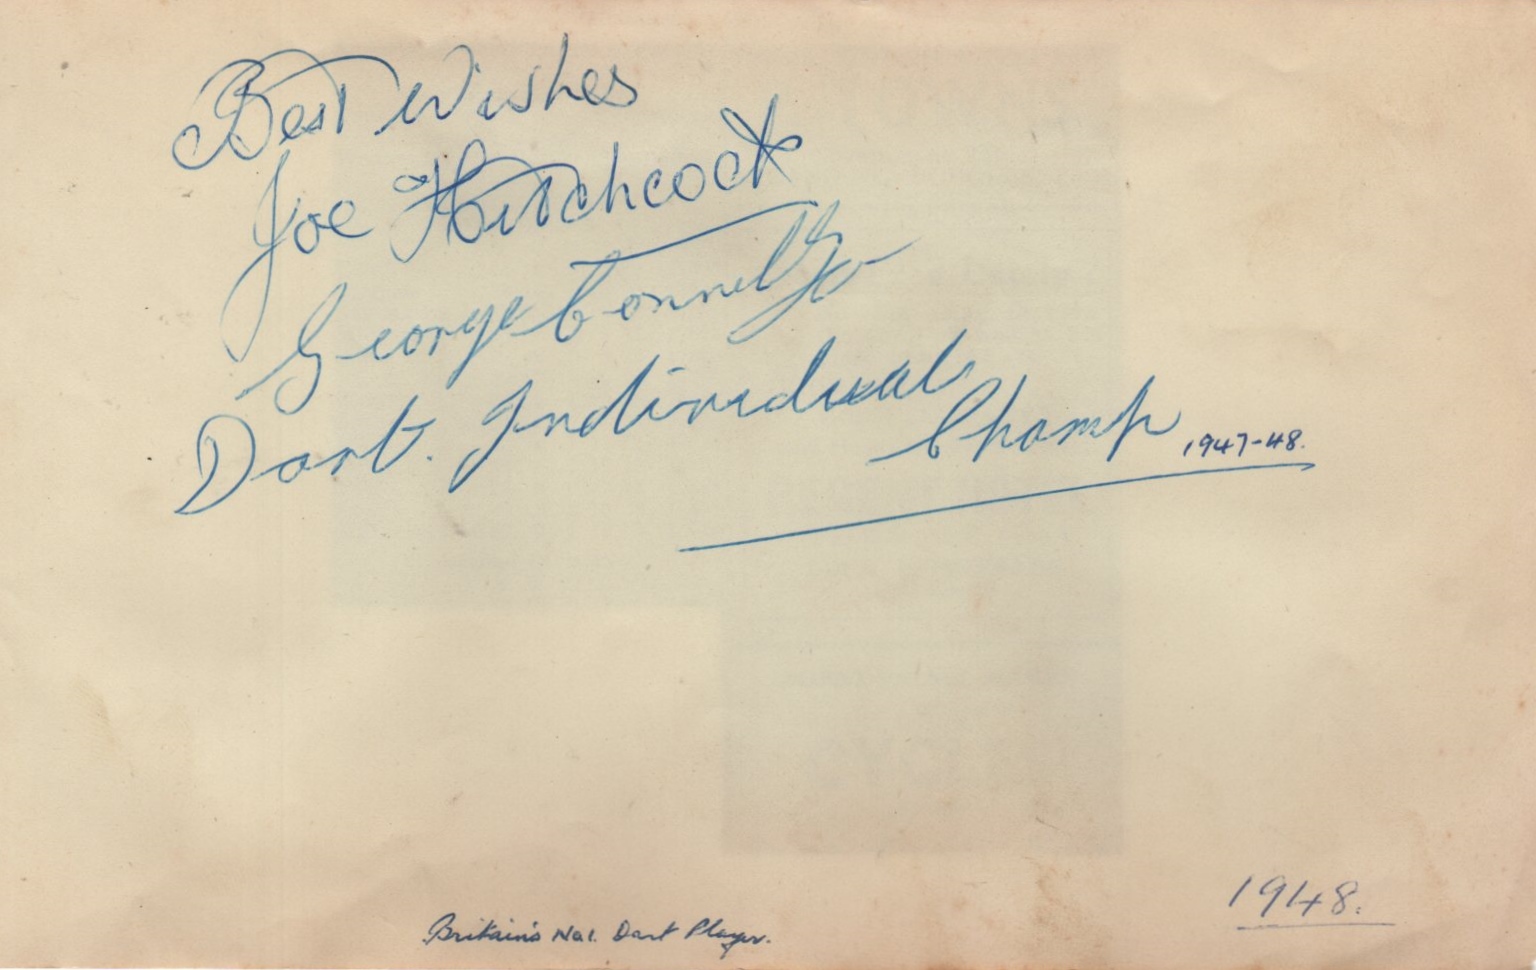 Best Wishes
Joe Hitchcock
George Connell
Dart. Individual
Champ 1947-48.
1948.
Britain's No1. Dart Player.